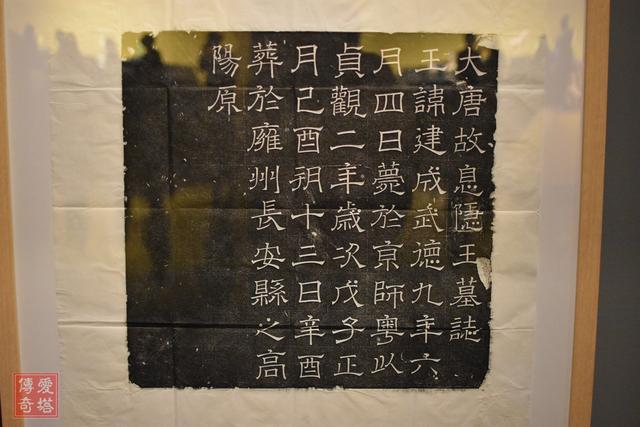 大唐故息隱王墓誌
王諱建成武德九年六
月四日薨於京師粵以
貞觀二年歲次戊子正
月己酉朔十三日辛酉
葬於雍州長安縣之高
陽原
愛塔
傳奇